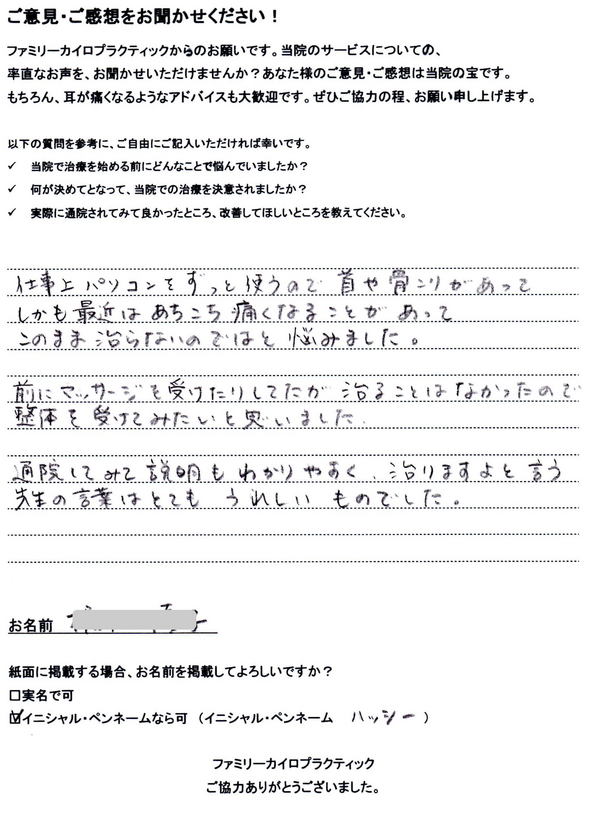 ご意見・ご感想をお聞かせください！
ファミリーカイロプラクティックからのお願いです。当院のサービスについての、
率直なお声を、お聞かせいただけませんか？あなた様のご意見・ご感想は当院の宝です。
もちろん、耳が痛くなるようなアドバイスも大歓迎です。ぜひご協力の程、お願い申し上げます。
以下の質問を参考に、ご自由にご記入いただければ幸いです。
✓ 当院で治療を始める前にどんなことで悩んでいましたか？
✓ 何が決めてとなって、当院での治療を決意されましたか？
✓ 実際に通院されてみて良かったところ、改善してほしいところを教えてください。
仕事上パソコンをずっと使うので首や骨こりがあって
しかも最近はあちこち痛くなることがあって
このまま治らないのではと悩みました。
前にマッサージを受けたりしてたが治ることはなかったので
整体を受けてみたいと思いました。
通院してみて説明もわかりやすく、治りますよと言う
先生の言葉はとてもうれしいものでした。
お名前
紙面に掲載する場合、お名前を掲載してよろしいですか？
□実名で可
☑イニシャル・ペンネームなら可（イニシャル・ペンネーム ハッシー ）
ファミリーカイロプラクティック
ご協力ありがとうございました。